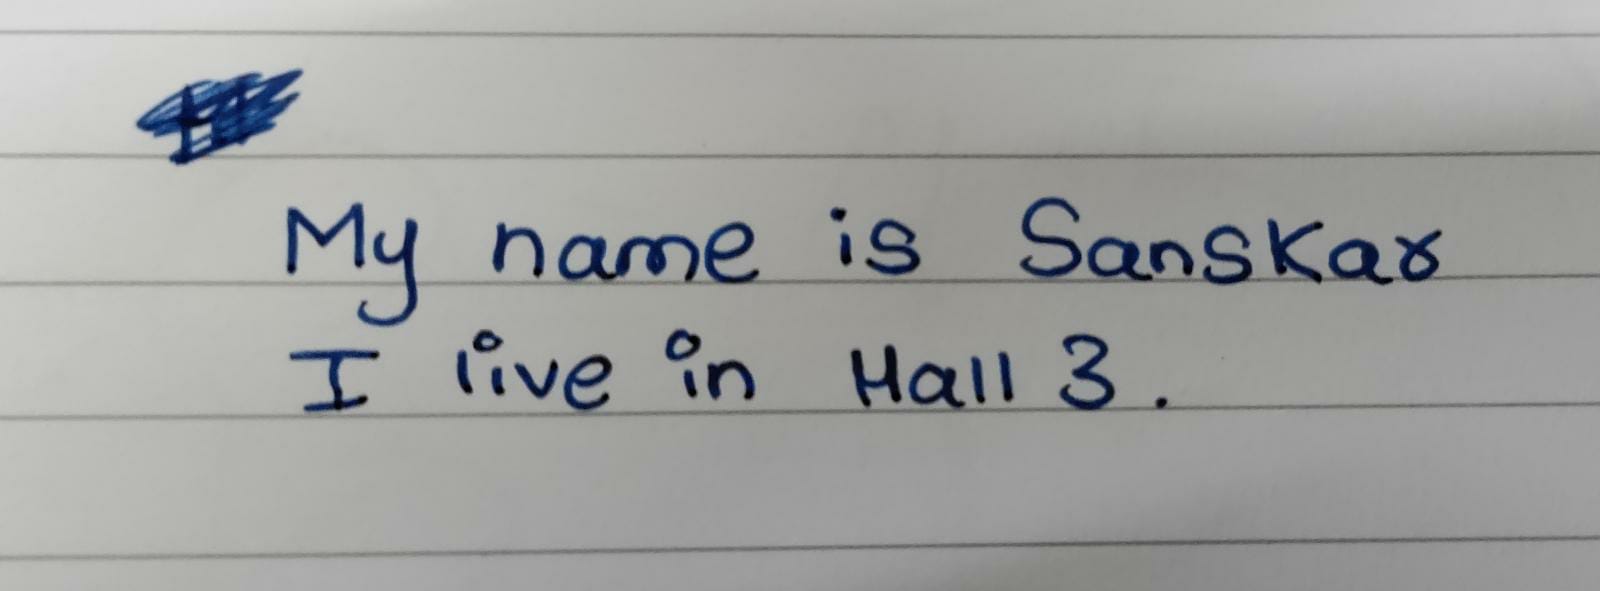 My name is Sanskar
I live in Hall 3.